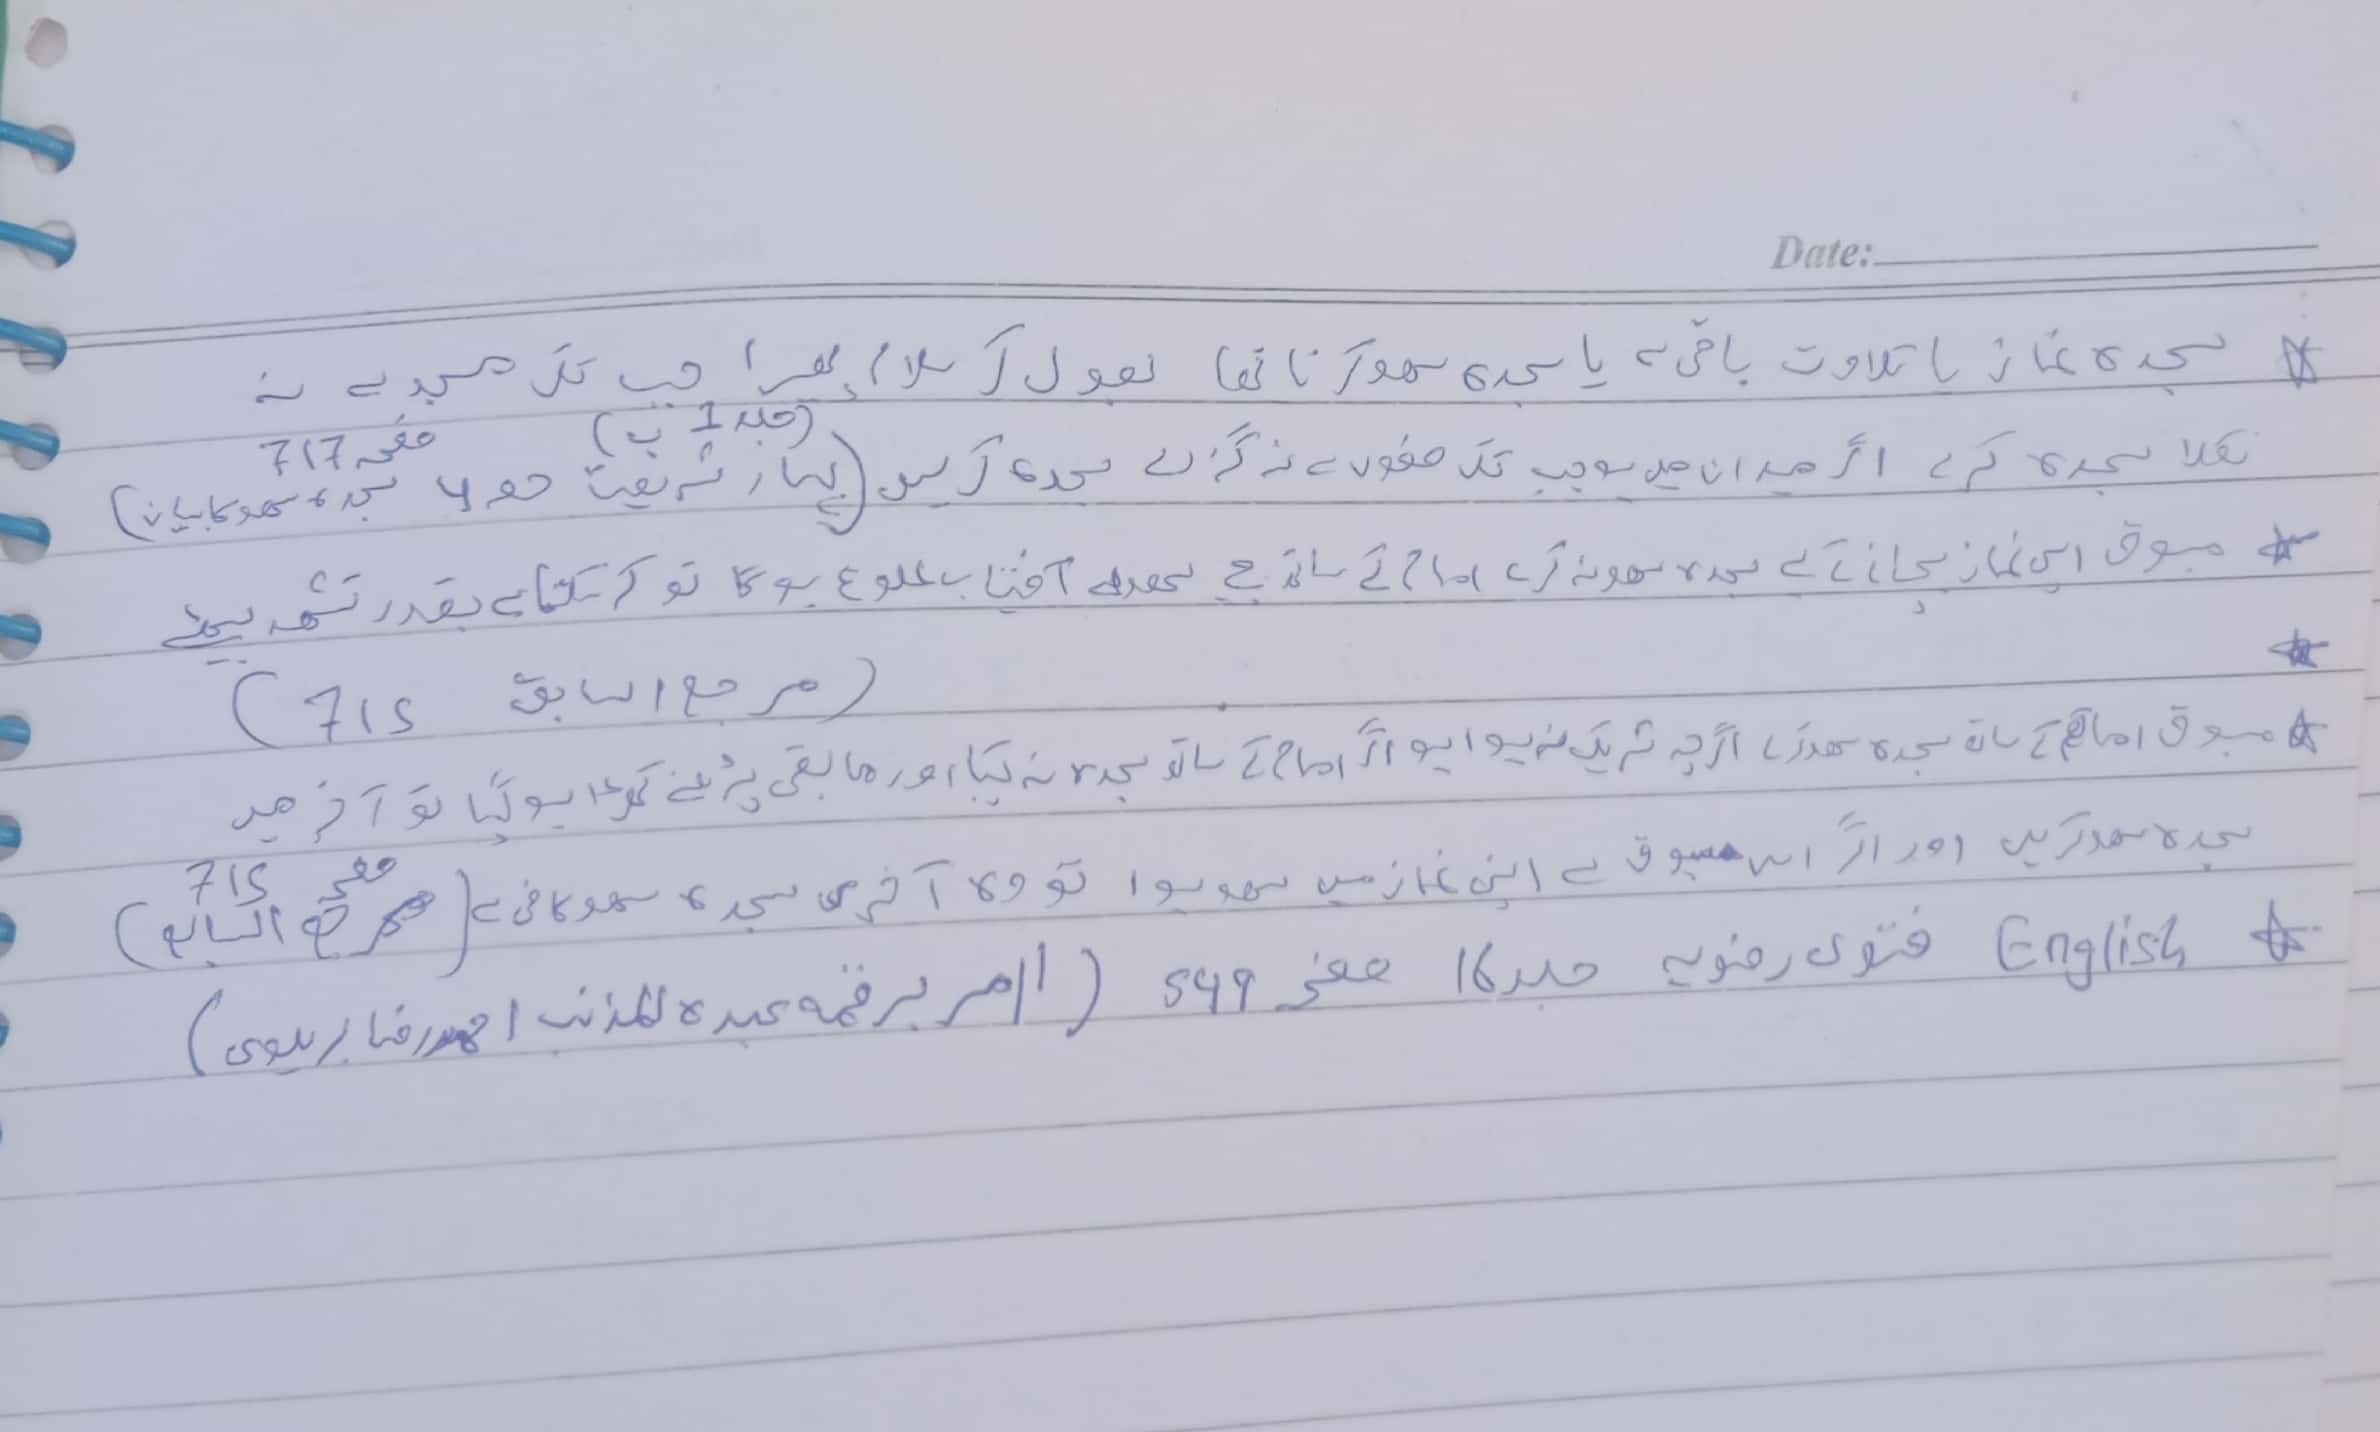 Date:
☆ سجدہ نماز یا تلاوت باقی ہے یا سجدہ سھو کرنا تھا بھول کر سلام پھیرا جب تک مسجد سے نہ
(جلد 1 ب) صفحہ 717
نکلا سجدہ کرے اگر میدان میں ہو جب تک صفوں سے نہ گزرے سجدہ کریں (بہار شریعت حصہ 4 سجدہ سھو کا بیان)
☆ مسبوق اپنی نماز بچانے کے لے سجدہ سھو نہ کرے امام کے ساتھ جیسے آفتاب طلوع ہو گا تو کر سکتا ہے بقدر تشھد بیٹھے
☆
(مرجع السابق 715)
☆ مسبوق امام کے ساتھ سجدہ سھو کرے اگرچہ شریک نہ ہوا ہو اگر امام کے ساتھ سجدہ نہ کیا اور مابقی پڑھنے کھڑا ہو گیا تو آخر میں
سجدہ سھو کریں اور اگر اس مسبوق سے اپنی نماز میں سھو ہوا تو وہ آخری سجدہ سھو کافی ہے (مرجع السابع) صفحہ 715
☆ English فتوی رضویہ جلد 16 صفحہ 549 (الامر برقمہ عبدہ المذنب احمد رضا بریلوی)